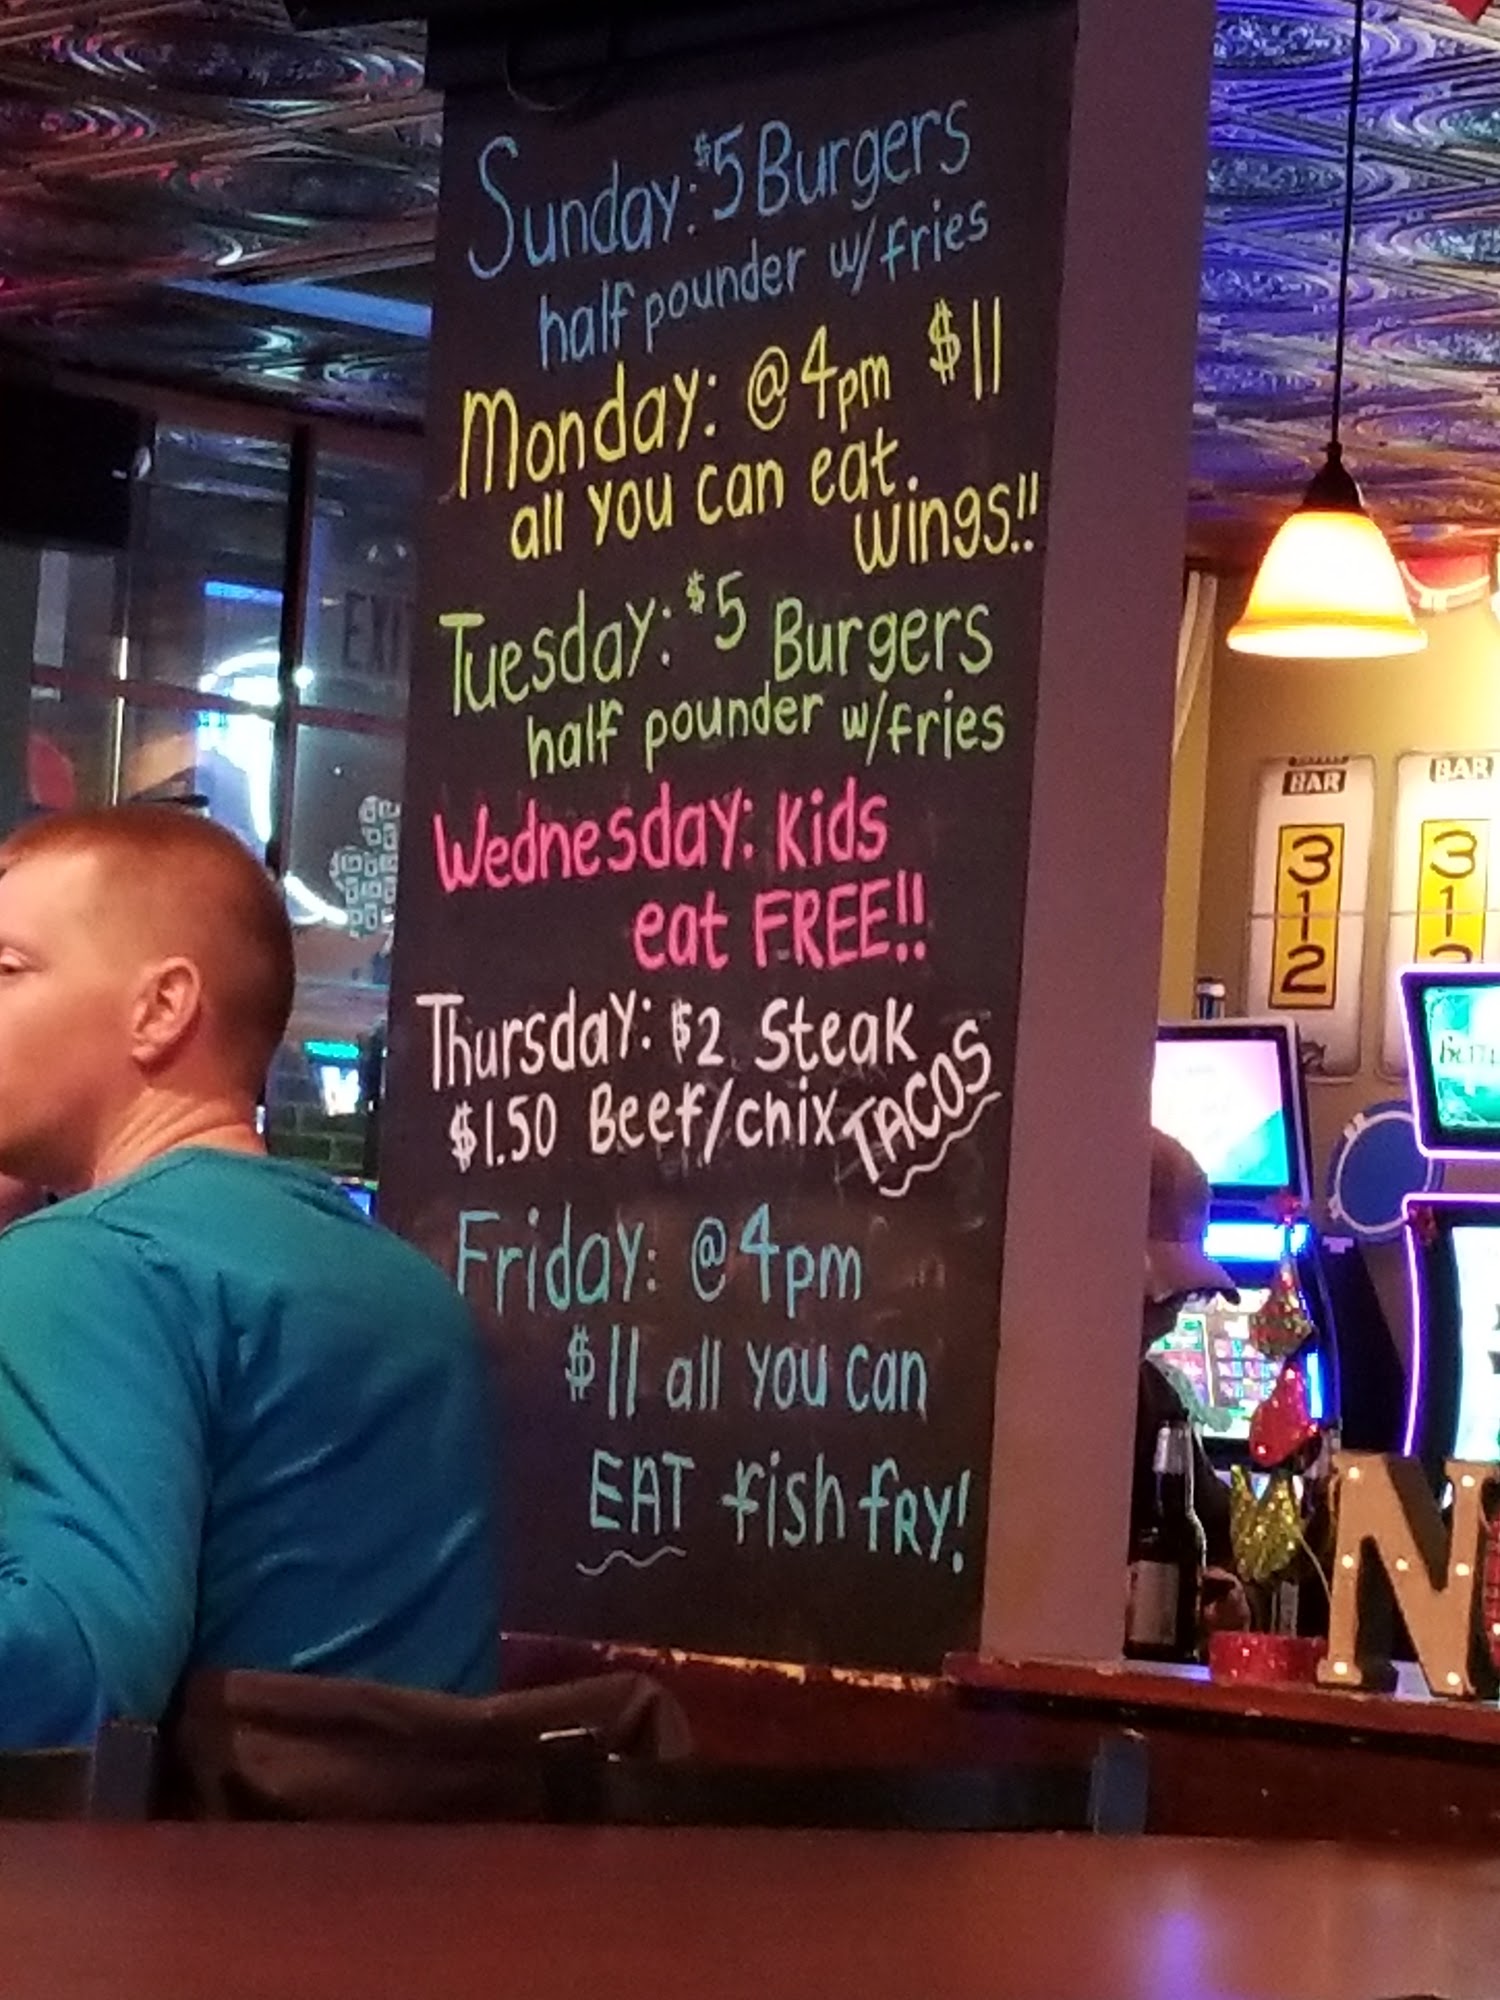 Sunday: $5 Burgers
half pounder w/fries
Monday: @4pm $11
all you can eat.
wings!!
Tuesday: $5 Burgers
half pounder w/fries
Wednesday: Kids
eat FREE!!
Thursday: $2 Steak
$1.50 Beef/chix TACOS
Friday: @4pm
$11 all you can
EAT fish fRY!
EXI
BAR
312
BAR
31
N